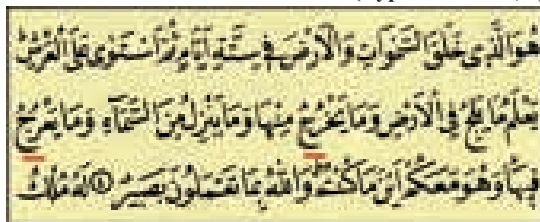 هُوَ الَّذِى خَلَقَ السَّمٰوَاتِ وَالْاَرْضَ فِى سِتَّةِ اَيَّامٍ ثُمَّ اسْتَوٰى عَلَى الْعَرْشِ
يَعْلَمُ مَا يَلِجُ فِى الْاَرْضِ وَمَا يَخْرُجُ مِنْهَا وَمَا يَنْزِلُ مِنَ السَّمَآءِ وَمَا يَعْرُجُ
فِيهَا وَهُوَ مَعَكُمْ اَيْنَ مَا كُنْتُمْ وَاللّٰهُ بِمَا تَعْمَلُونَ بَصِيرٌ ۝ لَهُ مُلْكُ